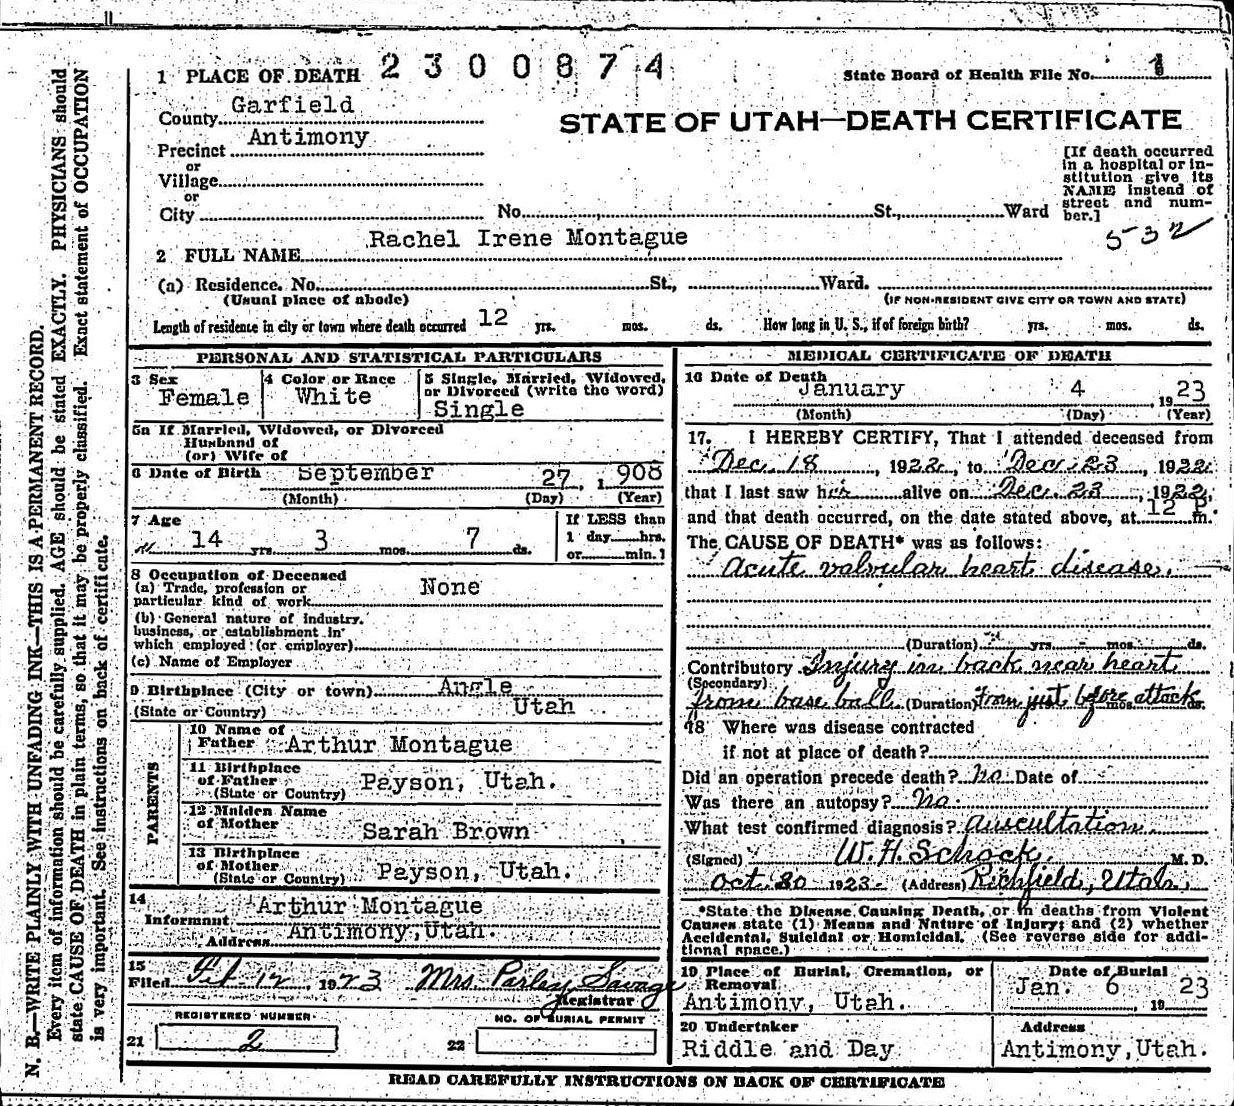 1 PLACE OF DEATH 2300874 State Board of Health File No. 1
County Garfield
STATE OF UTAH—DEATH CERTIFICATE
Precinct Antimony
or
Village
or
City No. St., Ward
[If death occurred in a hospital or in-
stitution give its
NAME instead of
street and num-
ber.]
532
2 FULL NAME Rachel Irene Montague
(a) Residence. No. St., Ward.
(Usual place of abode) (IF NON-RESIDENT GIVE CITY OR TOWN AND STATE)
Length of residence in city or town where death occurred 12 yrs. mos. ds. How long in U. S., if of foreign birth? yrs. mos. ds.
PERSONAL AND STATISTICAL PARTICULARS
3 Sex
Female
4 Color or Race
White
5 Single, Married, Widowed,
or Divorced (write the word)
Single
5a If Married, Widowed, or Divorced
Husband of
(or) Wife of
6 Date of Birth September 27, 1908
(Month) (Day) (Year)
7 Age
14 yrs. 3 mos. 7 ds.
If LESS than
1 day hrs.
or min.]
8 Occupation of Deceased
(a) Trade, profession or
particular kind of work None
(b) General nature of industry.
business, or establishment in
which employed (or employer)
(c) Name of Employer
9 Birthplace (City or town) Angle
(State or Country) Utah
PARENTS
10 Name of
Father Arthur Montague
11 Birthplace
of Father
(State or Country) Payson, Utah.
12 Maiden Name
of Mother
Sarah Brown
13 Birthplace
of Mother
(State or Country) Payson, Utah.
14
Informant Arthur Montague
Address Antimony, Utah.
15
Filed Feb 12 1923 Mrs. Parley Savage
Registrar
REGISTERED NUMBER
21 2
NO. OF BURIAL PERMIT
22
MEDICAL CERTIFICATE OF DEATH
16 Date of Death
January 4 1923
(Month) (Day) (Year)
17. I HEREBY CERTIFY, That I attended deceased from
Dec. 18, 1922, to Dec. 23, 1922
that I last saw her alive on Dec. 23, 1922,
and that death occurred, on the date stated above, at 12 P. m.
The CAUSE OF DEATH* was as follows:
Acute valvular heart disease.
(Duration) yrs. - mos. ds.
Contributory Injury in back near heart
(Secondary)
from base ball (Duration) from just before attack mos. ds.
18 Where was disease contracted
if not at place of death?
Did an operation precede death? no Date of
Was there an autopsy? No.
What test confirmed diagnosis? Auscultation.
(Signed) W. H. Schock, M. D.
Oct. 30 1923. (Address) Richfield, Utah.
*State the Disease Causing Death, or in deaths from Violent
Causes state (1) Means and Nature of Injury; and (2) whether
Accidental, Suicidal or Homicidal. (See reverse side for addi-
tional space.)
19 Place of Burial, Cremation, or
Removal
Antimony, Utah.
Date of Burial
Jan. 6 1923
20 Undertaker
Riddle and Day
Address
Antimony, Utah.
READ CAREFULLY INSTRUCTIONS ON BACK OF CERTIFICATE
N. B.—WRITE PLAINLY WITH UNFADING INK—THIS IS A PERMANENT RECORD.
Every item of information should be carefully supplied. AGE should be stated EXACTLY. PHYSICIANS should
state CAUSE OF DEATH in plain terms, so that it may be properly classified. Exact statement of OCCUPATION
is very important. See instructions on back of certificate.